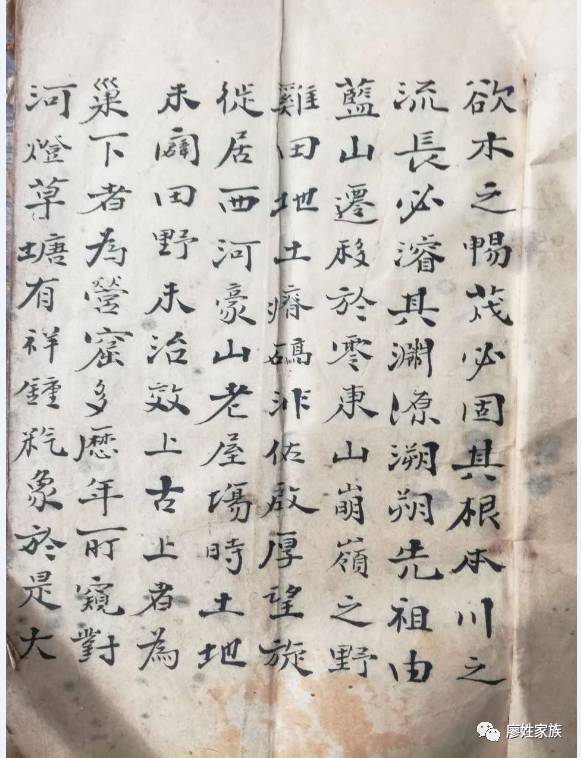 欲木之暢茂必固其根本川之
流長必濬其淵源溯朔先祖由
藍山遷移於零東山崩嶺之野
雞田地土瘠磽非佑啟厚望旋
徙居西河豪山老屋塲時土地
未闢田野未治效上古上者為
巢下者為營窟多歷年所窺對
河燈草塘有祥鍾㐹象於是大
廖姓家族